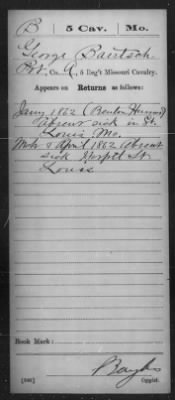 B | 5 Cav. | Mo.
George Bairtsch
Pvt, Co. A, 5 Reg't Missouri Cavalry.
Appears on Returns as follows:
Jany 1862 (Benton Hussars)
Absent sick in St.
Louis Mo.
Mch & April 1862 Absent
sick Hospitl St.
Louis
Book Mark:
(546)
Copyist.